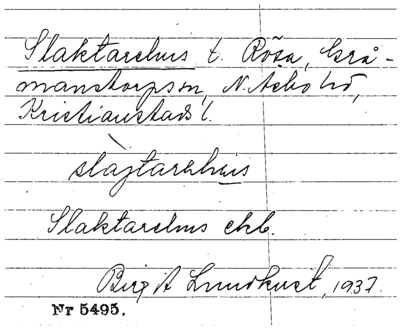 Slaktarehus t. Röša, Grå-
manstorpssn, N. Asbo hd,
Kristianstads l.
slajtarehuis
Slaktarehus ekb.
Birgit Lundkvist, 1937.
Nr 5495.